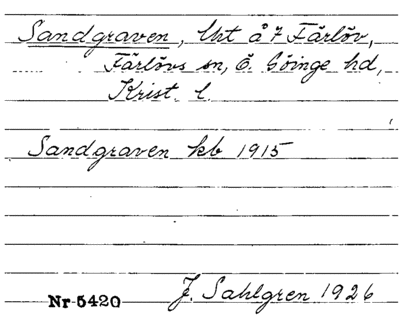 Sandgraven, Uht å 7 Färlöv,
Färlövs sn, Ö. Göinge hd,
Krist. l.
Sandgraven kb 1915
Nr 5420 J. Sahlgren 1926